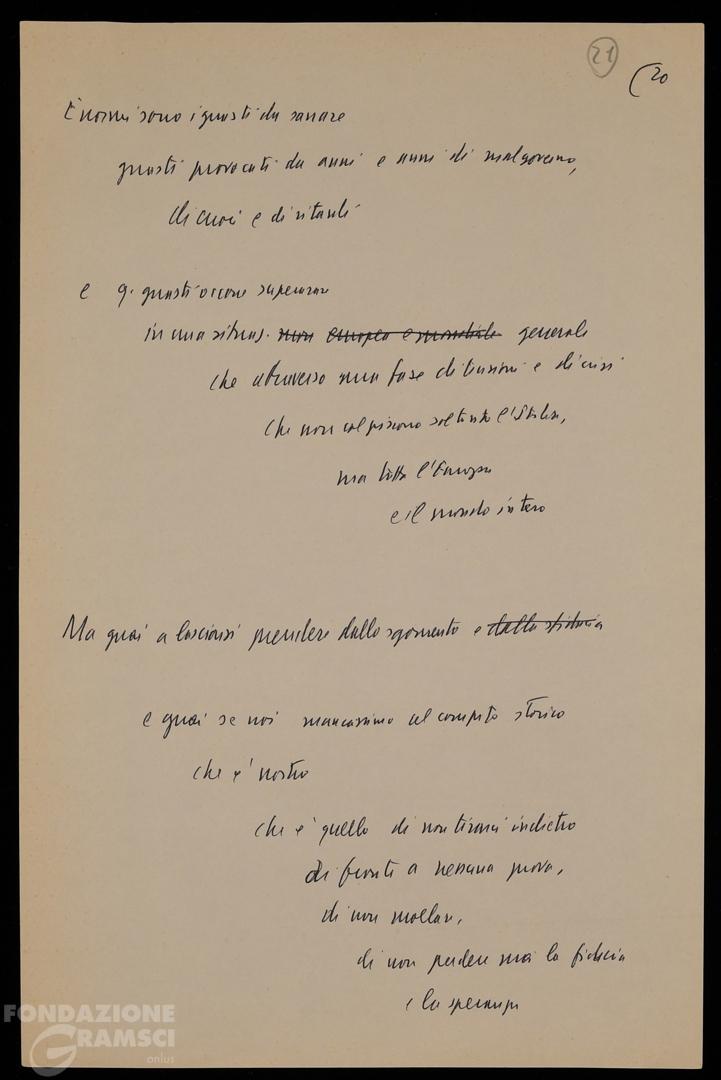 21
(20
Enormi sono i guasti da sanare
guasti provocati da anni e anni di malgoverno,
di e di ritardi
e q. guasti occorre superare
in una situaz. non europea e mondiale generale
che attraversa una fase di tensioni e di crisi
che non colpiscono soltanto l'Italia,
ma tutta l'Europa
e il mondo intero
Ma guai a lasciarsi prendere dallo sgomento e dalla sfiducia
e guai se noi mancassimo al compito storico
che e' nostro
che e' quello di non tirarsi indietro
di fronte a nessuna prova,
di non mollare,
di non perdere mai la fiducia
e la speranza
FONDAZIONE
GRAMSCI
onlus